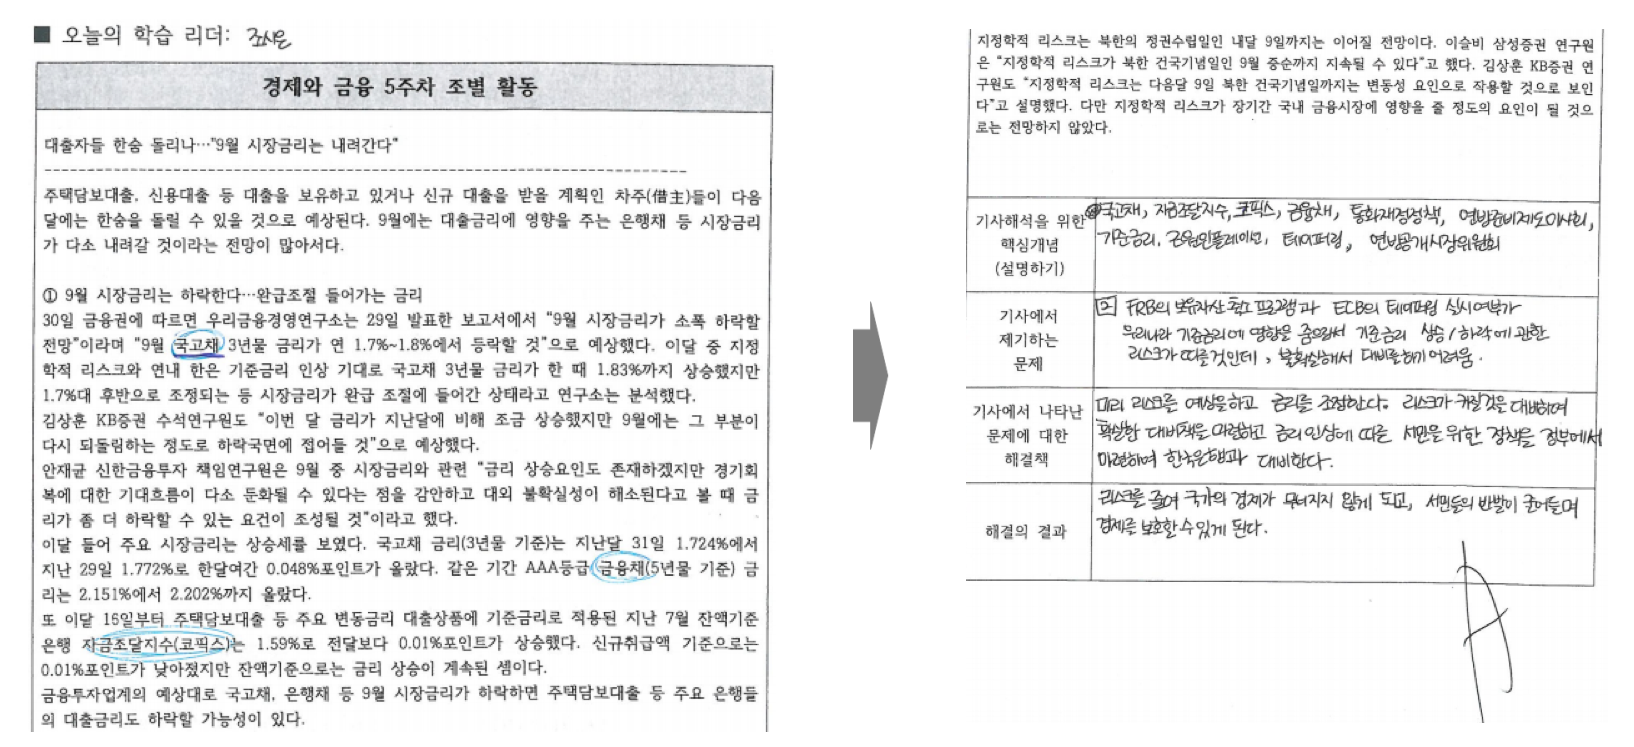 ■ 오늘의 학습 리더: 조시은
경제와 금융 5주차 조별 활동
대출자들 한숨 돌리나…"9월 시장금리는 내려간다"
주택담보대출, 신용대출 등 대출을 보유하고 있거나 신규 대출을 받을 계획인 차주(借主)들이 다음
달에는 한숨을 돌릴 수 있을 것으로 예상된다. 9월에는 대출금리에 영향을 주는 은행채 등 시장금리
가 다소 내려갈 것이라는 전망이 많아서다.
① 9월 시장금리는 하락한다…완급조절 들어가는 금리
30일 금융권에 따르면 우리금융경영연구소는 29일 발표한 보고서에서 "9월 시장금리가 소폭 하락할
전망"이라며 "9월 국고채 3년물 금리가 연 1.7%~1.8%에서 등락할 것"으로 예상했다. 이달 중 지정
학적 리스크와 연내 한은 기준금리 인상 기대로 국고채 3년물 금리가 한 때 1.83%까지 상승했지만
1.7%대 후반으로 조정되는 등 시장금리가 완급 조절에 들어간 상태라고 연구소는 분석했다.
김상훈 KB증권 수석연구원도 "이번 달 금리가 지난달에 비해 조금 상승했지만 9월에는 그 부분이
다시 되돌림하는 정도로 하락국면에 접어들 것"으로 예상했다.
안재균 신한금융투자 책임연구원은 9월 중 시장금리와 관련 "금리 상승요인도 존재하겠지만 경기회
복에 대한 기대흐름이 다소 둔화될 수 있다는 점을 감안하고 대외 불확실성이 해소된다고 볼 때 금
리가 좀 더 하락할 수 있는 요건이 조성될 것"이라고 했다.
이달 들어 주요 시장금리는 상승세를 보였다. 국고채 금리(3년물 기준)는 지난달 31일 1.724%에서
지난 29일 1.772%로 한달여간 0.048%포인트가 올랐다. 같은 기간 AAA등급 금융채(5년물 기준) 금
리는 2.151%에서 2.202%까지 올랐다.
또 이달 16일부터 주택담보대출 등 주요 변동금리 대출상품에 기준금리로 적용된 지난 7월 잔액기준
은행 자금조달지수(코픽스)는 1.59%로 전달보다 0.01%포인트가 상승했다. 신규취급액 기준으로는
0.01%포인트가 낮아졌지만 잔액기준으로는 금리 상승이 계속된 셈이다.
금융투자업계의 예상대로 국고채, 은행채 등 9월 시장금리가 하락하면 주택담보대출 등 주요 은행들
의 대출금리도 하락할 가능성이 있다.
지정학적 리스크는 북한의 정권수립일인 내달 9일까지는 이어질 전망이다. 이슬비 삼성증권 연구원
은 "지정학적 리스크가 북한 건국기념일인 9월 중순까지 지속될 수 있다"고 했다. 김상훈 KB증권 연
구원도 "지정학적 리스크는 다음달 9일 북한 건국기념일까지는 변동성 요인으로 작용할 것으로 보인
다"고 설명했다. 다만 지정학적 리스크가 장기간 국내 금융시장에 영향을 줄 정도의 요인이 될 것으
로는 전망하지 않았다.
기사해석을 위한
핵심개념
(설명하기)
국고채, 자금조달지수, 코픽스, 금융채, 통화재정정책, 연방준비제도이사회,
기준금리, 근원인플레이션, 테이퍼링, 연방공개시장위원회
기사에서
제기하는
문제
FRB의 보유자산 축소 프로그램과 ECB의 테이퍼링 실시여부가
우리나라 기준금리에 영향을 줌으로서 기준금리 상승/하락에 관한
리스크가 따를것인데, 불확실해서 대비를하기 어려움.
기사에서 나타난
문제에 대한
해결책
미리 리스크를 예상을하고 금리를 조정한다. 리스크가 커질것을 대비하여
확실한 대비책을 마련하고 금리인상에 따른 서민을 위한 정책을 정부에서
마련하여 한국은행과 대비한다.
해결의 결과
리스크를 줄여 국가의 경제가 무너지지 않게 되고, 서민들의 반발이 줄어들며
경제를 보호할 수 있게 된다.